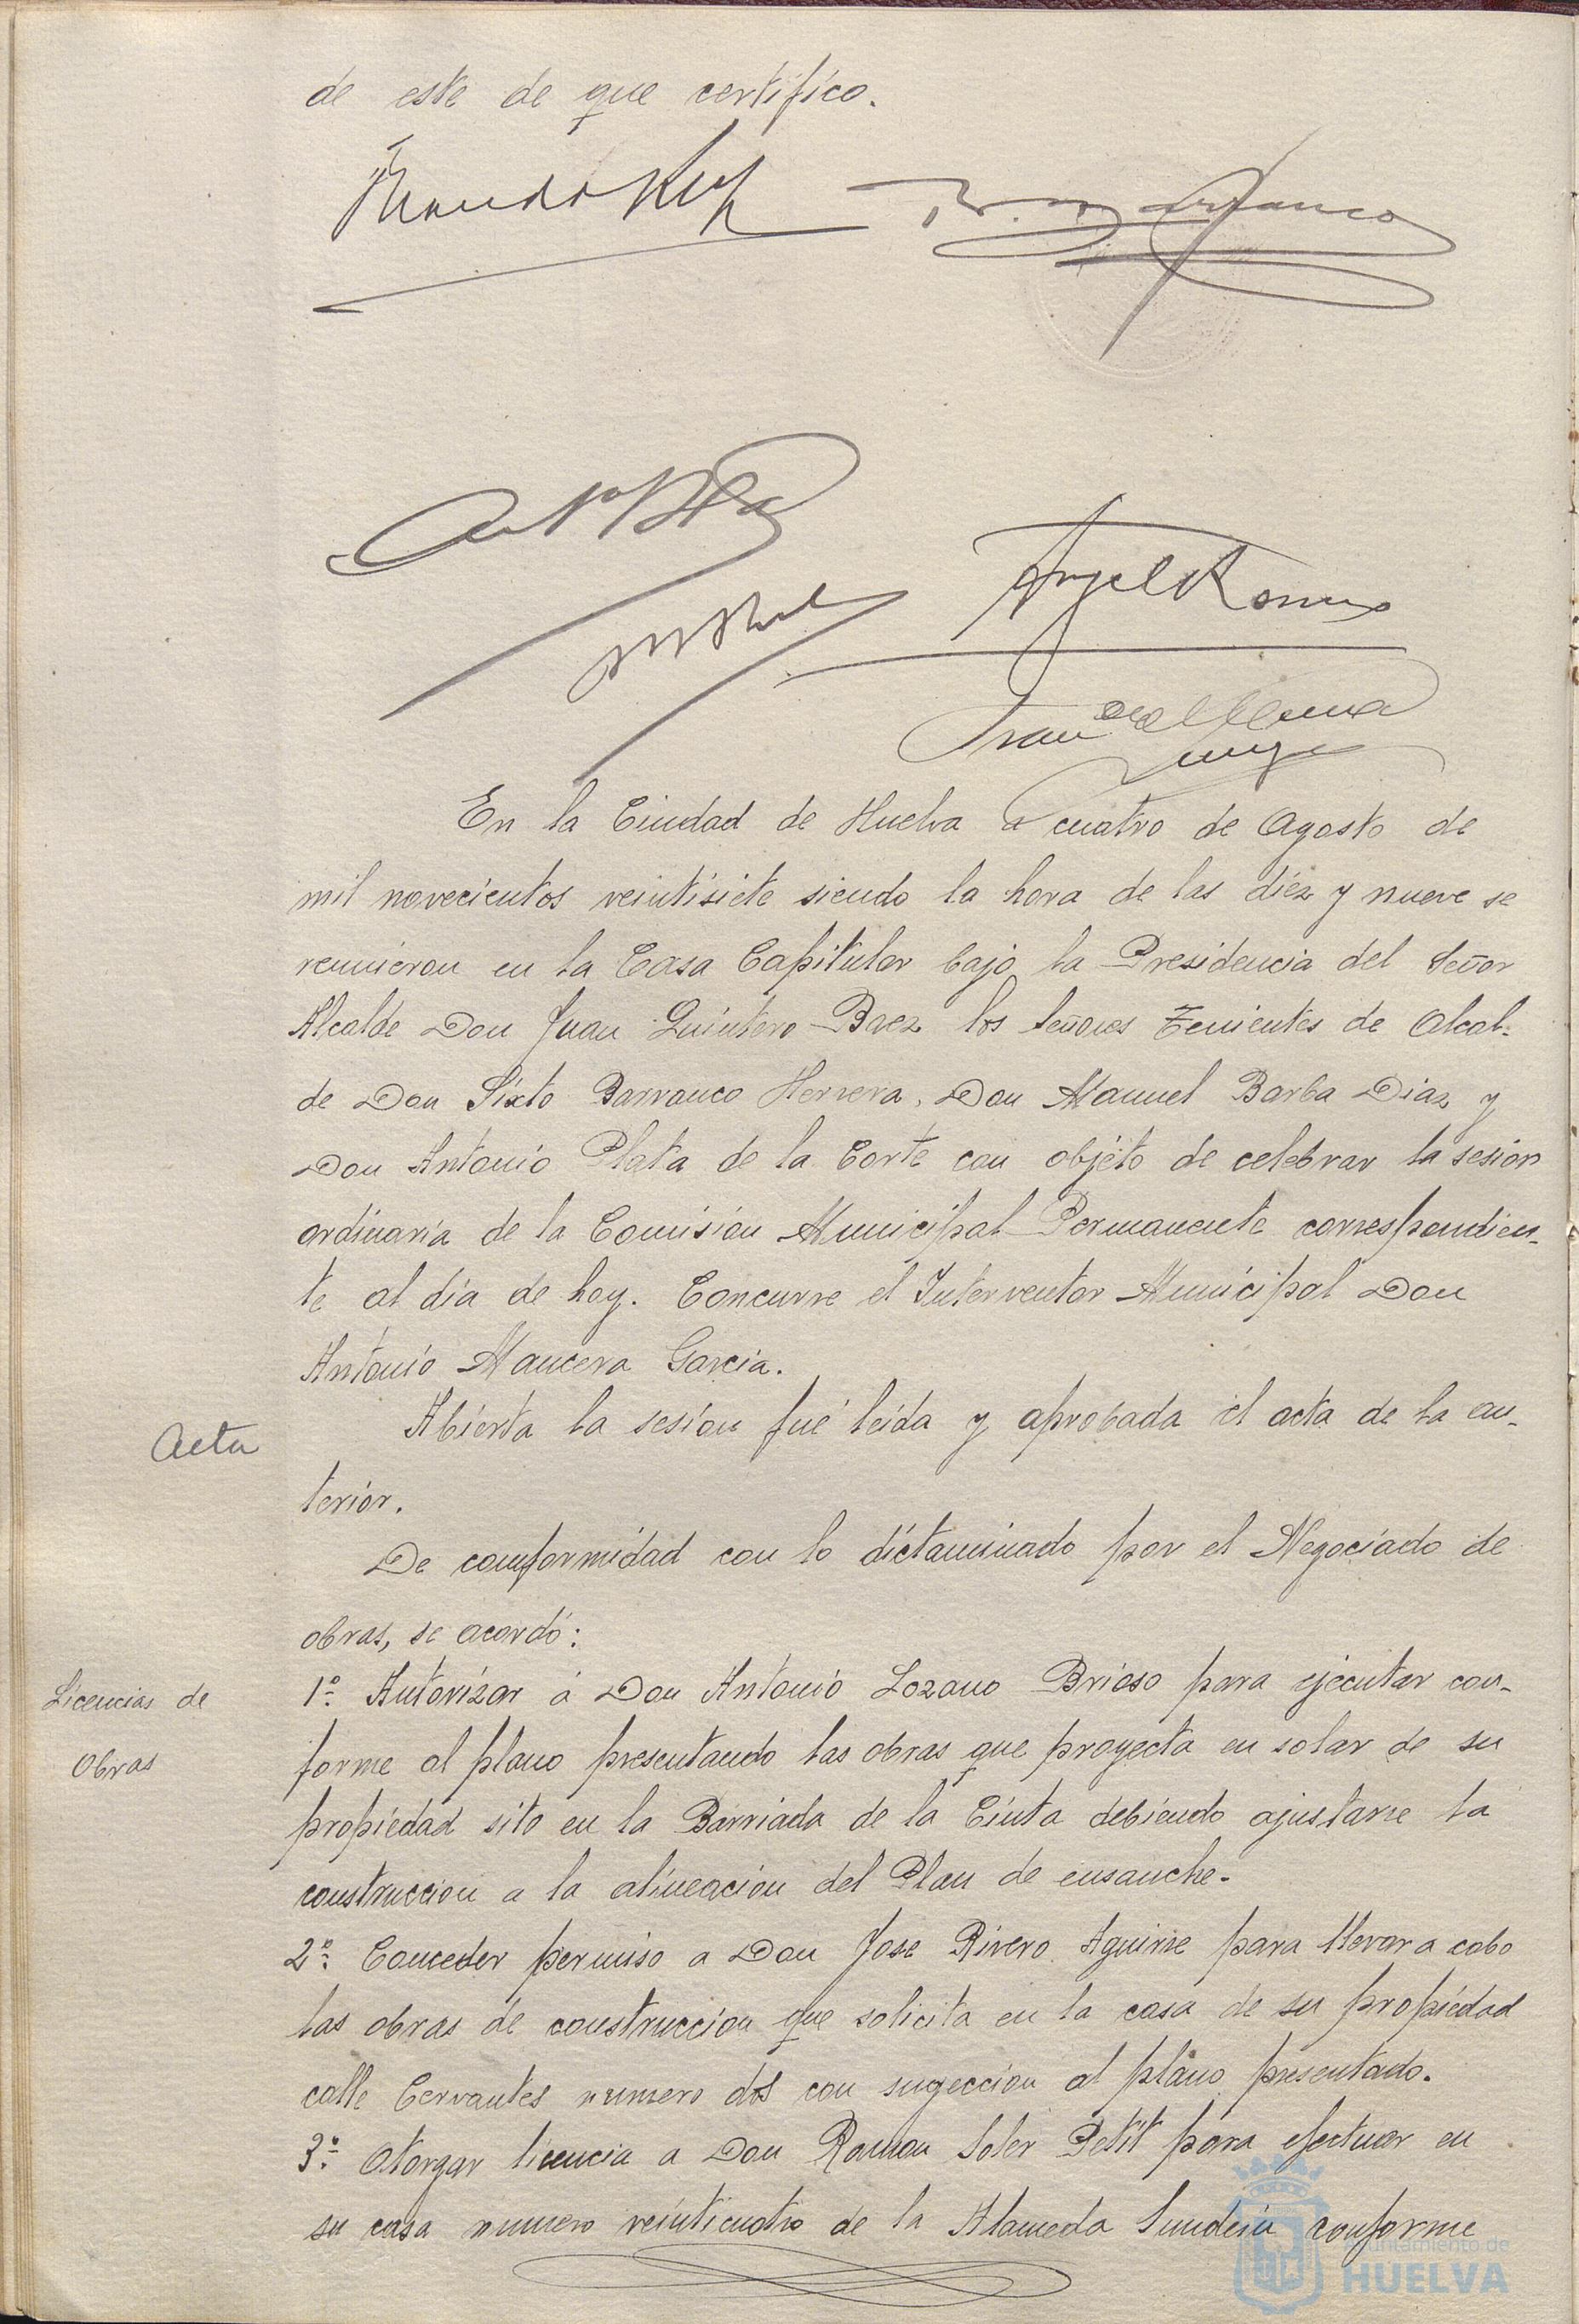 de este de que certifico.
Angel Romero
En la Ciudad de Huelva a cuatro de Agosto de
mil novecientos veintisiete siendo la hora de las diez y nueve se
reunieron en la Casa Capitular bajo la Presidencia del Señor
Alcalde Don Juan Quintero Baez los Señores Tenientes de Alcal-
de Don Sixto Barranco Herrera, Don Manuel Barba Diaz y
Don Antonio Plata de la Corte con objeto de celebrar la sesion
ordinaria de la Comisión Municipal Permanente correspondien-
te al dia de hoy. Concurre el Interventor Municipal Don
Antonio Mancera Garcia.
Acta
Abierta la sesion fué leida y aprobada el acta de la an-
terior.
De comformidad con lo dictaminado por el Negociado de
obras, se acordó:
Licencias de
Obras
1º Autorizar á Don Antonio Lozano Brioso para ejecutar con-
forme al plano presentando las obras que proyecta en solar de su
propiedad sito en la Barriada de la Cinta debiendo ajustarse la
construccion a la alineacion del Plan de ensanche.
2º Conceder permiso a Don Jose Rivero Aguirre para llevar a cabo
las obras de construccion que solicita en la casa de su propiedad
calle Cervantes numero dos con sugeccion al plano presentado.
3º Otorgar licencia a Don Ramon Soler Petit para efectuar en
su casa numero veinticuatro de la Alameda Sundein conforme
Ayuntamiento de
HUELVA